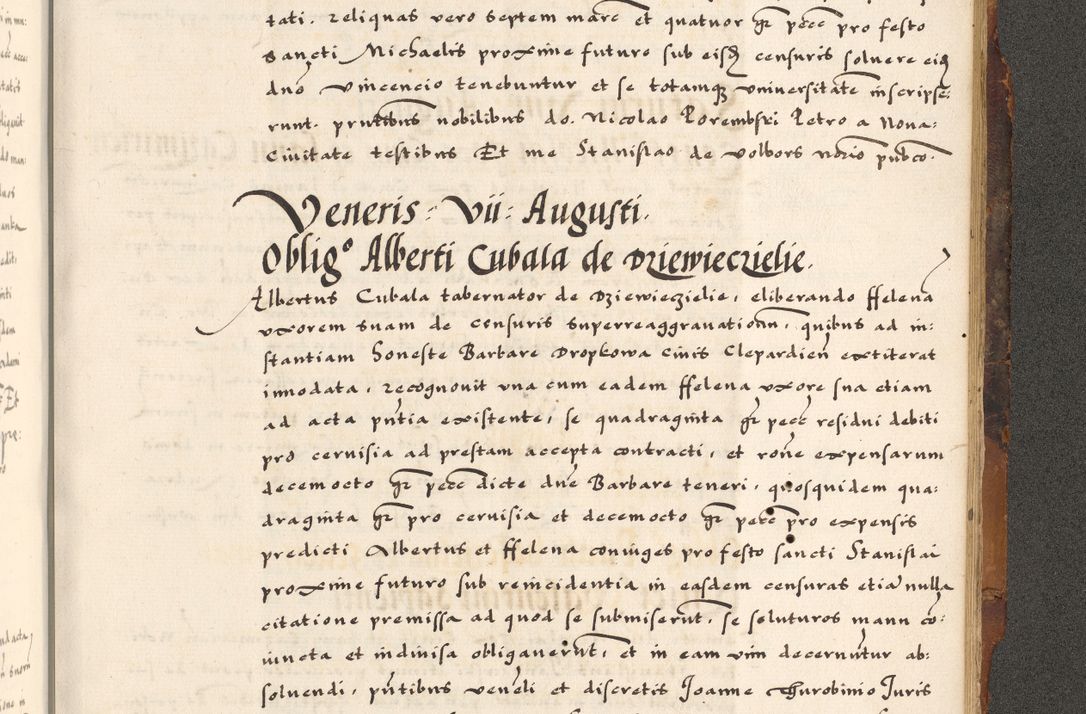 tati. reliquas vero septem marc et quatuor gr pecc pro festo
sancti Michaelis proxime futuro sub eisd censuris soluere eid
dno vincencio tenebuntur et se totamq universitate inscripse:
runt. pntibus nobilibus do. Nicolao Porembski Petro a Nova:
Civitate testibus Et me Stanislao de volbors notrio publco.
Veneris: vii: Augusti.
Oblig° Alberti Cubala de Dziewieczielie.
Albertus Cubala tabernator de Dziewieczielie, eliberando ffelena
uxorem suam de censuris superreaggrauationu, quibus ad in:
stantiam honeste Barbare Dropkowa civis Clepardien extiterat
innodata, recognouit una cum eadem ffelena uxore sua etiam
ad acta pntia existente, se quadraginta gr pecc residui debiti
pro ceruisia ad prestam accepta contracti, et rone expensarum
decemocto gr pecc dicte dne Barbare teneri, quosquidem qua:
draginta gr pro ceruisia et decemocto gr pecc pro expensis
predicti Albertus et ffelena coniuges pro festo sancti Stanislai
proxime futuro sub reincidentia in easdem censuras etia nulla
citatione premissa ad quod se submiserut, se soluturos manu co:
iuncta et indivisa obligauerut, et in eam vim decernutur ab:
soluendi, pntibus veneli et discretis Joanne Thurobinio Juris